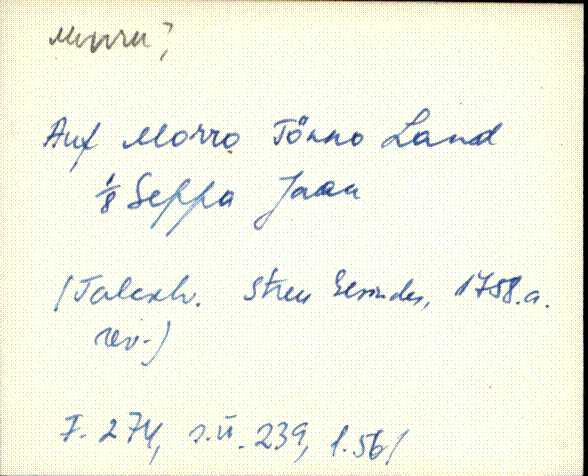 Murru?
Auf Morro Tönno Land
1/8 Seppa Jaan
(Talexh. Streu Gesindes, 1758.a.
rev.)
F. 274, s.ü. 239, l. 56/